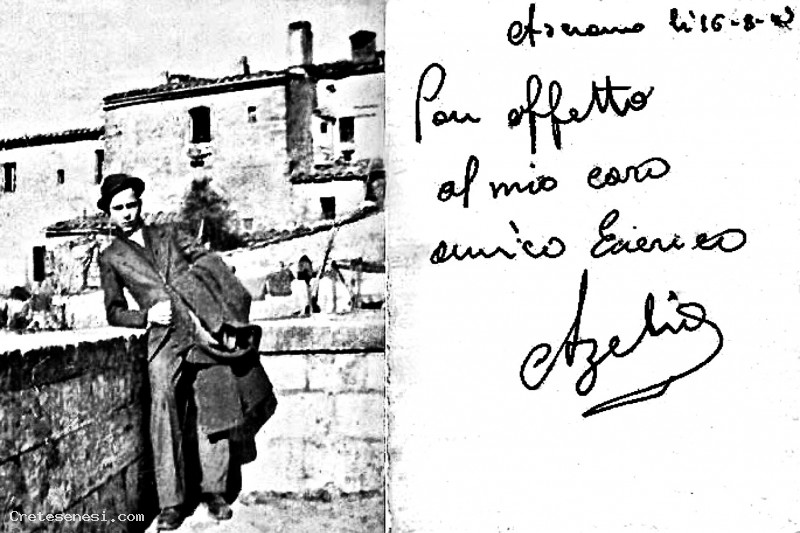 Asciano lì 16-8-42
Con affetto
al mio caro
amico
Azelio
Cretesenesi.com